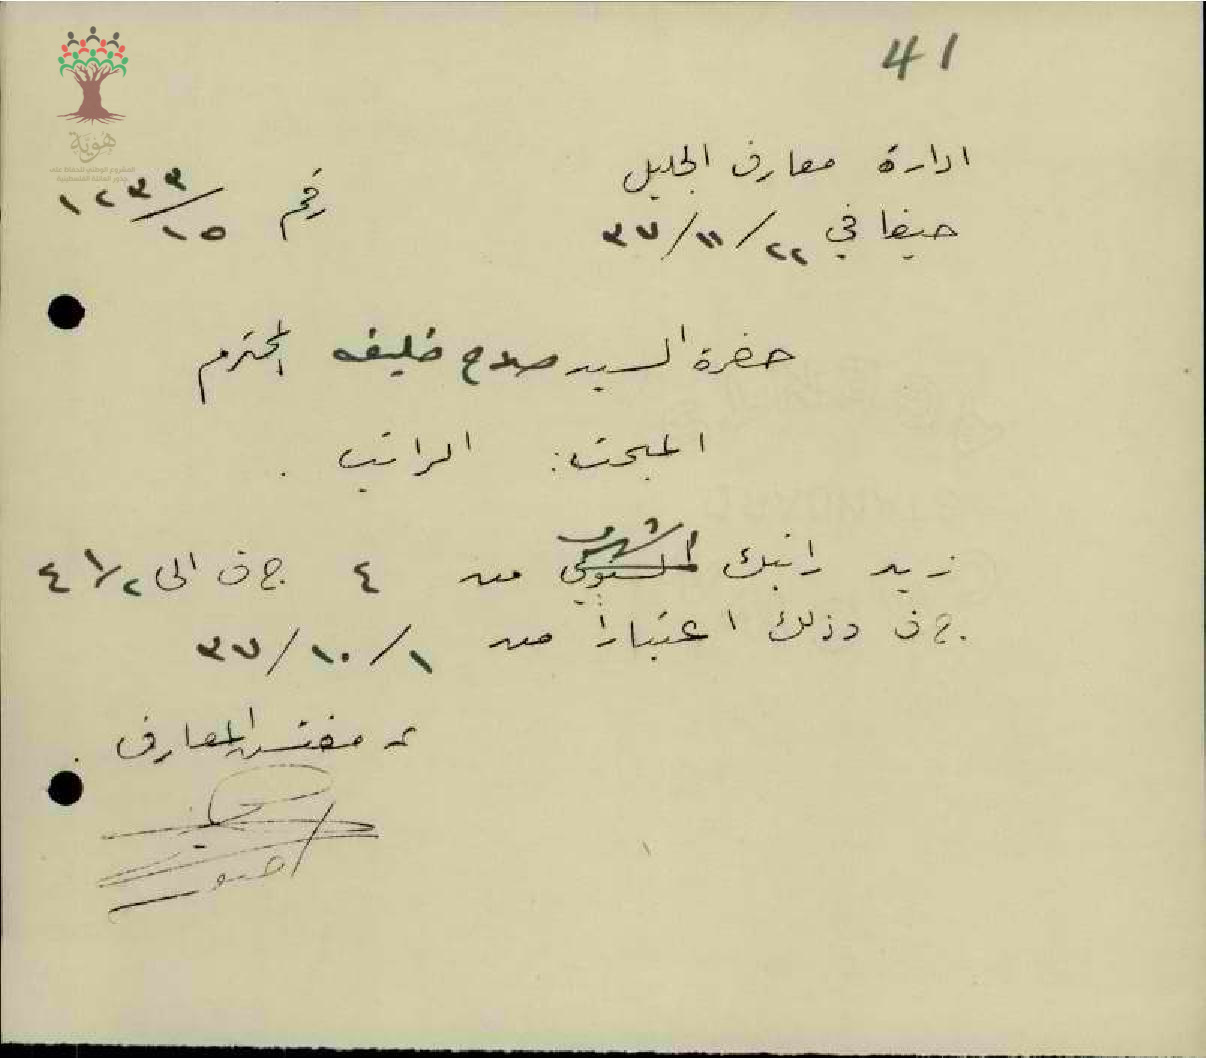 41
ادارة معارف الجليل
رقم ١٢٣٣/١٥
حيفا في ٢٢/١١/٣٧
حضرة السيد صلاح خليفه المحترم
المبحث: الراتب .
زيد راتبك الشهري من ٤ ج ف الى ٤ ١/٢
ج ف وذلك اعتباراً من ١/١٠/٣٧
مفتش المعارف .
هوية
المشروع الوطني للحفاظ على
جذور العائلة الفلسطينية